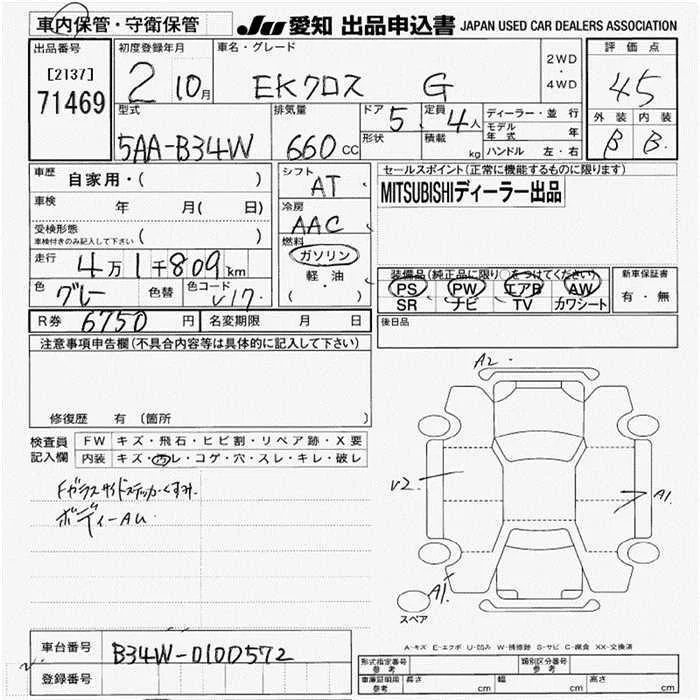 車内保管・守衛保管
JU 愛知 出品申込書 JAPAN USED CAR DEALERS ASSOCIATION
出品番号
[2137]
71469
初度登録年月
2 10月
車名・グレード
EKクロス G
2WD
・
4WD
評価点
4.5
外装 内装
B B
型式
5AA-B34W
排気量
660 cc
ドア 5
形状
定員 4人
積載 kg
ディーラー・並行
モデル年式 年
ハンドル 左・右
車歴 自家用・( )
車検 年 月( 日)
受検形態
車検付きのみ記入して下さい ( )
走行 4万1千809km
色 グレー 色替 色コード V17
シフト AT
冷房 AAC
燃料
ガソリン
軽・油
( )
セールスポイント(正常に機能するものに限ります)
MITSUBISHIディーラー出品
装備品(純正品に限り○をつけてください)
PS PW エアB AW
SR ナビ TV カワシート
新車保証書
有・無
R券 6750円 名変期限 月 日
後日品
注意事項申告欄(不具合内容等は具体的に記入して下さい)
修復歴 有 (箇所 )
検査員記入欄
FW キズ・飛石・ヒビ割・リペア跡・X要
内装 キズ・汚レ・コゲ・穴・スレ・キレ・破レ
Fガラスサイドステッカーくすみ
ボディーAU
A2
V2
A1
A1
スペア
A-キズ E-エクボ U-凹み W-補修跡 S-サビ C-腐食 XX-交換済
車台番号 B34W-0100572
登録番号
形式指定番号 参考
類別区分番号 参考
車庫証明用 参考 長さ cm 幅 cm 高さ cm